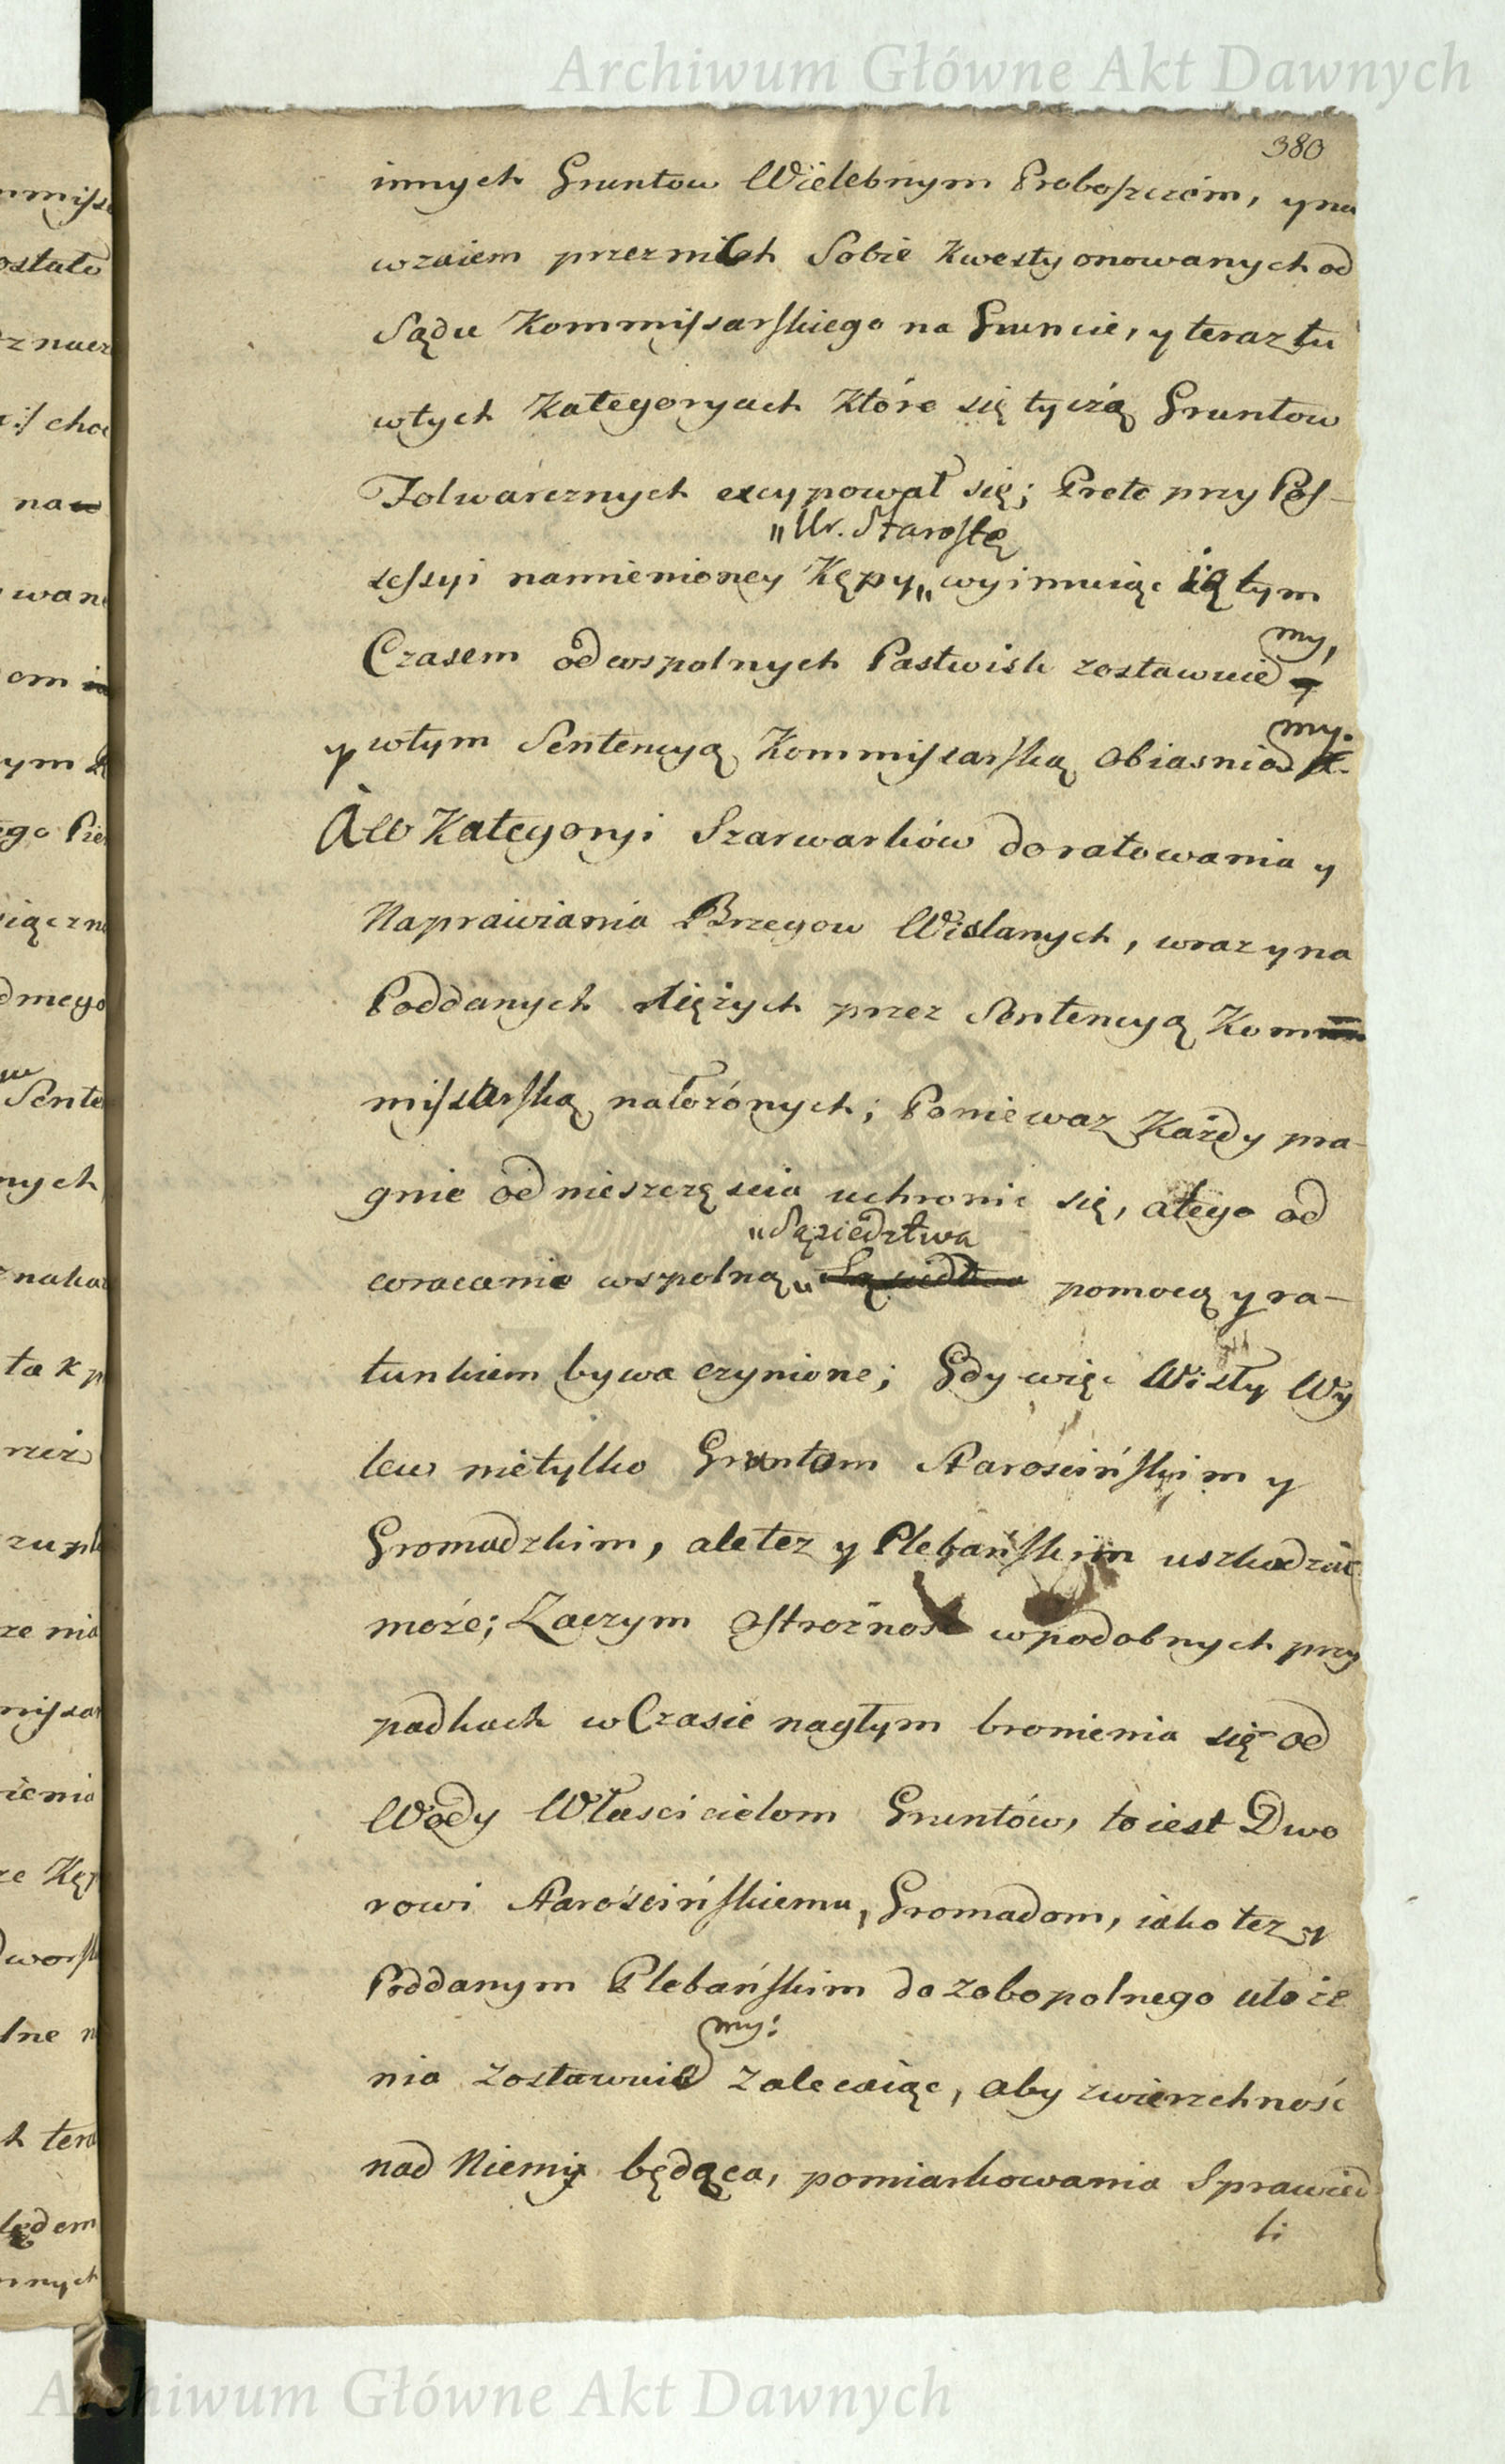 Archiwum Główne Akt Dawnych
380
innych Gruntow Wielebnym Proboszczóm, y na
wzaiem przez nich Sobie kwestyonowanych od
Sądu Kommissarskiego na Gruncie, y teraz tu
w tych Kategoryach które się tyczą Gruntow
Folwarcznych excypował się; Preto przy Pos-
„Ur. Starostę
sessyi namienioney Kępy „ wyimuiąc ią tym
my,
Czasem od wspolnych Pastwisk zostawuie
my.
y w tym Sentencyą Kommissarską obiasnia
A w Kategoryi Szarwarków do ratowania y
Naprawiania Brzegow Wislanych, wraz y na
Poddanych tiężych przez Sentencyą Kom
missarską nałożónych; Poniewaz Każdy pra-
gnie od nieszczęscia uchronic się, a tego od
„Sąsiedztwa
wracanie wspolną „ pomocą y ra-
tunkiem bywa czynione; Gdy więc Wisły Wy
lew nietylko Gruntom Starościńskim y
Gromadzkim, ale tez y Plebańskim uszkodzic
może; Zaczym Ostrożnosc w podobnych przy
padkach w Czasie nagłym bronienia się od
Wody Włascicielom Gruntów, to iest Dwo
rowi Starościńskiemu, Gromadom, iako tez y
Poddanym Plebańskim do zobopolnego ułoże
my:
nia zostawuie zalecaiąc, aby zwierzchność
nad Niemi będąca, pomiarkowania Sprawied
li
Archiwum Główne Akt Dawnych